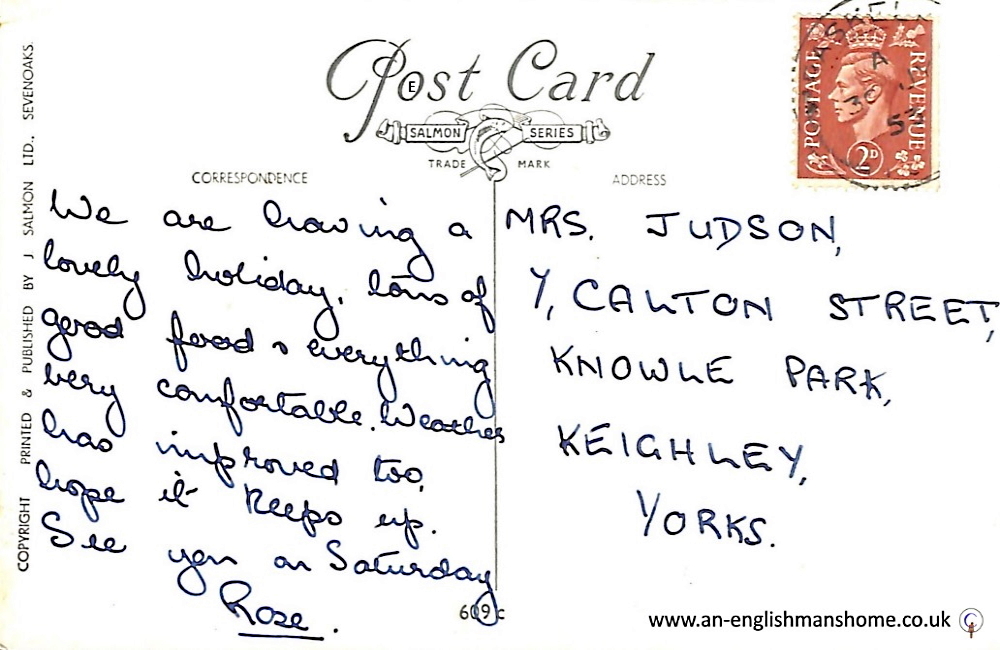 Post Card
E
SALMON SERIES
TRADE MARK
CORRESPONDENCE
ADDRESS
We are having a
lovely holiday, lots of
good food & everything
very comfortable. Weather
has improved too,
hope it keeps up.
See you on Saturday
Rose.
MRS. JUDSON,
7, CALTON STREET,
KNOWLE PARK,
KEIGHLEY,
YORKS.
COPYRIGHT PRINTED & PUBLISHED BY J SALMON LTD., SEVENOAKS.
POSTAGE
REVENUE
2D
A
30
609c
www.an-englishmanshome.co.uk